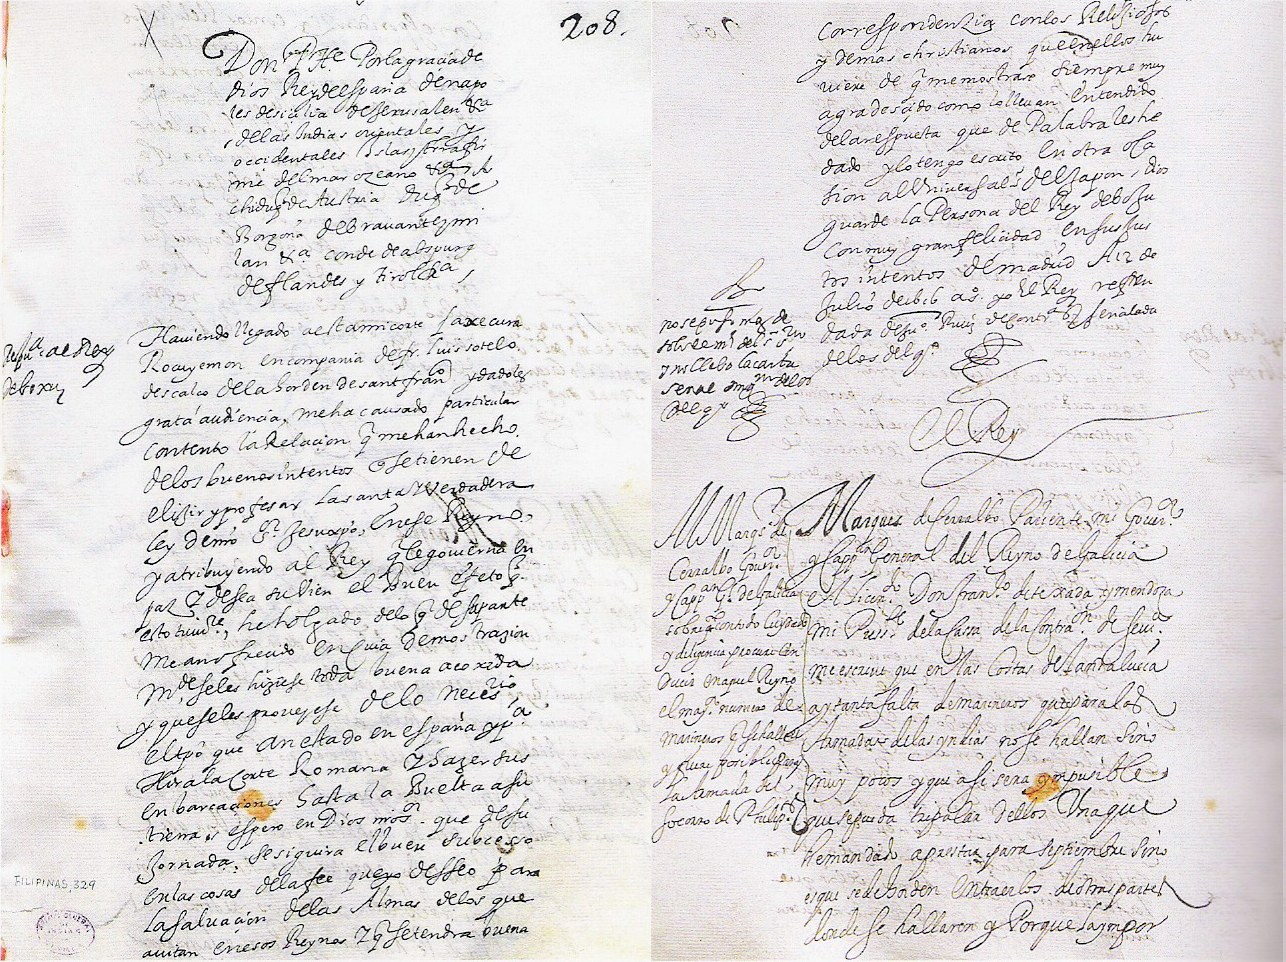 208.
Don Phe Por la gracia de
dios Rey de españa de napo
les de sicilia de Jerusalen &a
de las Indias orientales y
occidentales Islas y tierra fir
me del mar oceano &a Ar
chiduqe de Austria Duqe de
Borgoña de Bravante y mi
lan &a conde de abspurg
de flandes y tirol &a
Respta al Rey
de boxu
Haviendo llegado a esta mi corte faxecura
Rocuyemon en compania de fr. luis sotelo
descalço de la horden de sant franco y dadoles
grata audiencia, me ha causado particular
contento la Relacion q me han hecho
de los buenos intentos q se tienen de
elixir y profesar la santa y verdadera
ley de nro sr Jesuxpo, en ese Reyno,
y atribuyendo al Rey q le govierna en
paz y desea su bien el buen efeto q
esto tuvire, he holgado de lo q de su parte
me an ofrecido en cuia demostracion
Mde se les hiziese toda buena acoxida
y que se les proveyese de lo necesrio
el tpo que an estado en españa y pa
Hir a la Corte Romana y hazer sus
enbarcaciones hasta la Buelta a su
tierra, y espero en Dios nro sr. que de su
Jornada, se siguira el buen subcesso
en las cosas de la fee que yo desseo para
la salvacion de las Almas de los que
avitan en esos Reynos y q se tendra buena
FILIPINAS, 329
Correspondenzia con los Relisiosos
y demas christianos que en ellos tu
viere de q me mostrare siempre muy
agradescido como lo llevan entendido
de la respuesta que de Palabra les he
dado y lo tengo escrito en otra oca
sion al Universal sr del Japon, Dios
guarde la Persona del Rey de boxu
con muy gran felicidad en sus jus
tos intentos de madrid A 12 de
Julio de 1616 as. yo el Rey refren
dada de suo Ruiz de Contras y señalada
de los del qo
no se puso mas de
y no llebo la carta
del qo
El Rey
Al Marqs de
Cerralbo Gouor
y Cappan Gl. de Galicia
sobre q con todo cuydado
y diligencia procure con
ducir en aquel Reyno
el mayr numero de
Marineros q se hallare
y fuere posible para
la Armada del
socorro de Philipas
Marques de Cerralbo Pariente mi Gouor
y Cappan General del Reyno de Galicia
el Licendo Don Franco de texada y mendoza
mi Pressite de la Cassa de la Contraon de Seuia
me escrive que en las Costas de Landalucia
ay tanta falta de marineros que para las
Armadas de las yndias no se hallan sino
muy pocos y que asi sera ynpusible
que se pueda tripular dellos Una que
he mandado aprestar para septiembre sino
es que se de horden en traerlos de otras partes
donde se hallaren y Porque la ynpor